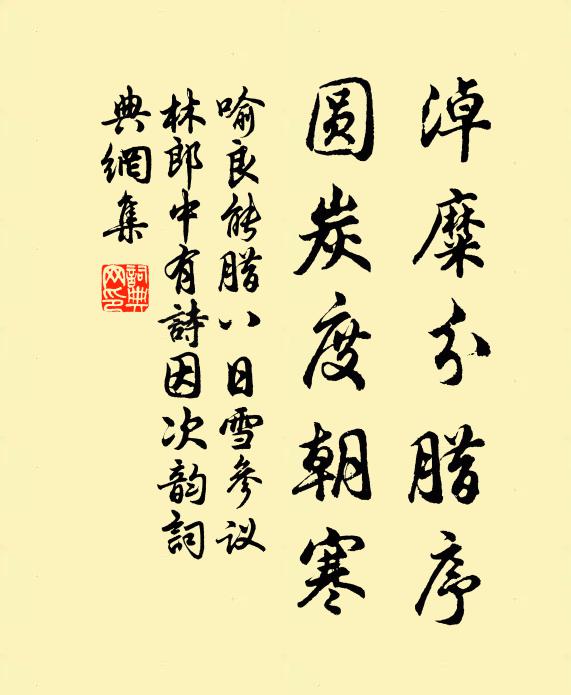 淖糜分腊序
圆炭度朝寒
喻良能腊八日雪參议
林郎中有詩因次韵詞
典網集
詞典网印